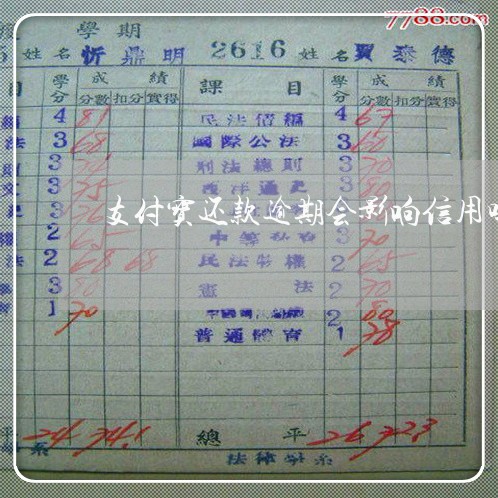 7788.com
學期
姓名 忻鼎明 2616 姓名 賈泰德
目 學分 成績 課目 學分 成績
分數 扣分 實得 分數 扣分 實得
4 81 民法債編 4 67
法 3 68 國際公法 3 60
則 3 刑法總則 3 70
文 3 75 西洋通史 3 80
支付宝还款逾期会影响信用
史 3 76
權 2 65 3 70
法 2 68 68 民法物權 2 65
3 80 憲法 2 70
育 1 70 2 80
普通體育 1 78
平 24 74.1 總平 26 72.3
系 法律學系